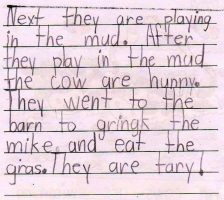 Next they are playing
in the mud. After
they play in the mud
the cow are hunny.
They went to the
barn to gringk the
mike and eat the
gras. They are tary!